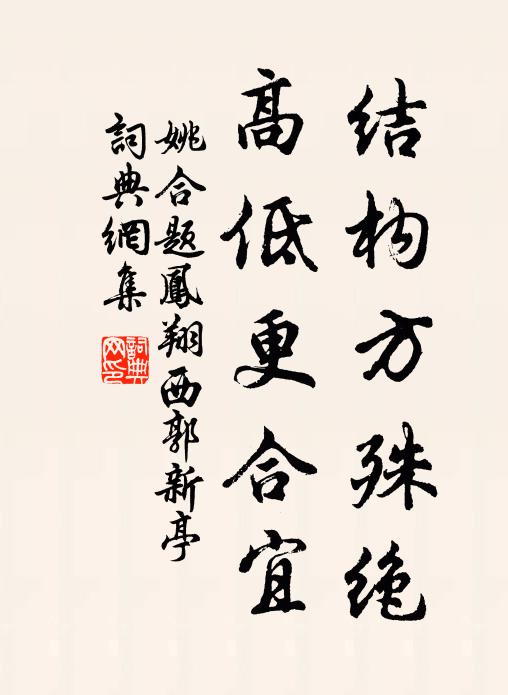 结构方殊绝
高低更合宜
姚合题鳳翔西郭新亭
詞典網集
詞典
网印